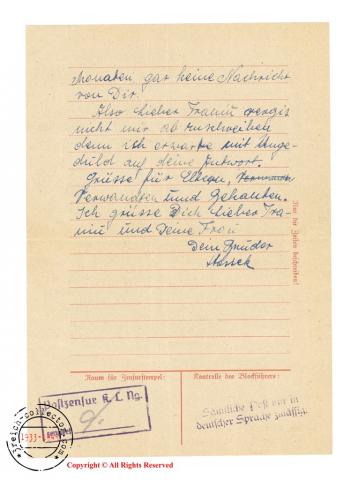 Monaten gar keine Nachricht
von Dir.
Also Lieber Franiu vergis
nicht mir ab zu schreiben
denn ich erwarte mit Unge-
duld auf deine Antwort.
Grüsse für Eltern,
Verwandten und Bekanten.
Ich grüsse Dich Lieber Fra-
niu und Deine Frau
Dein Bruder
Nur die Zeilen beschreiben!
Raum für Zensurstempel:
Kontrolle des Blockführers:
Postzensur K. L. Ng.
Sämtliche Post nur in
deutscher Sprache zulässig.
3reich-collector.com
1933-1945
Copyright © All Rights Reserved